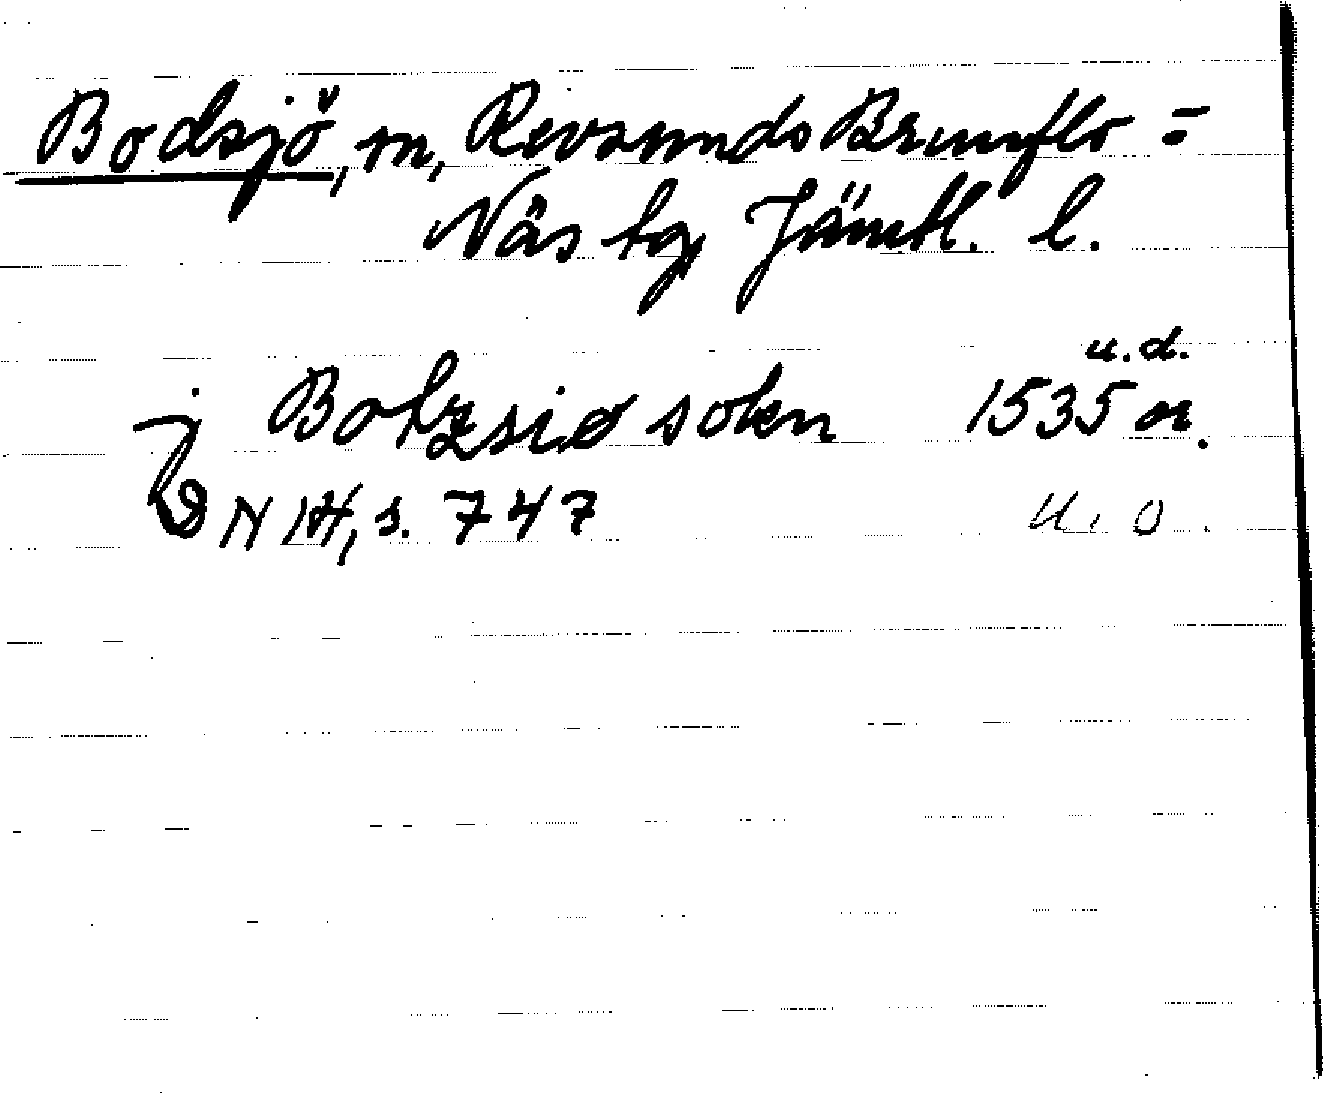 Bodsjö, m, Revsunds Brunflo =
Näs tg Jämtl. l.
u.d.
j Botzsiø sokn 1535 or.
DN 14, s. 747 u. o.